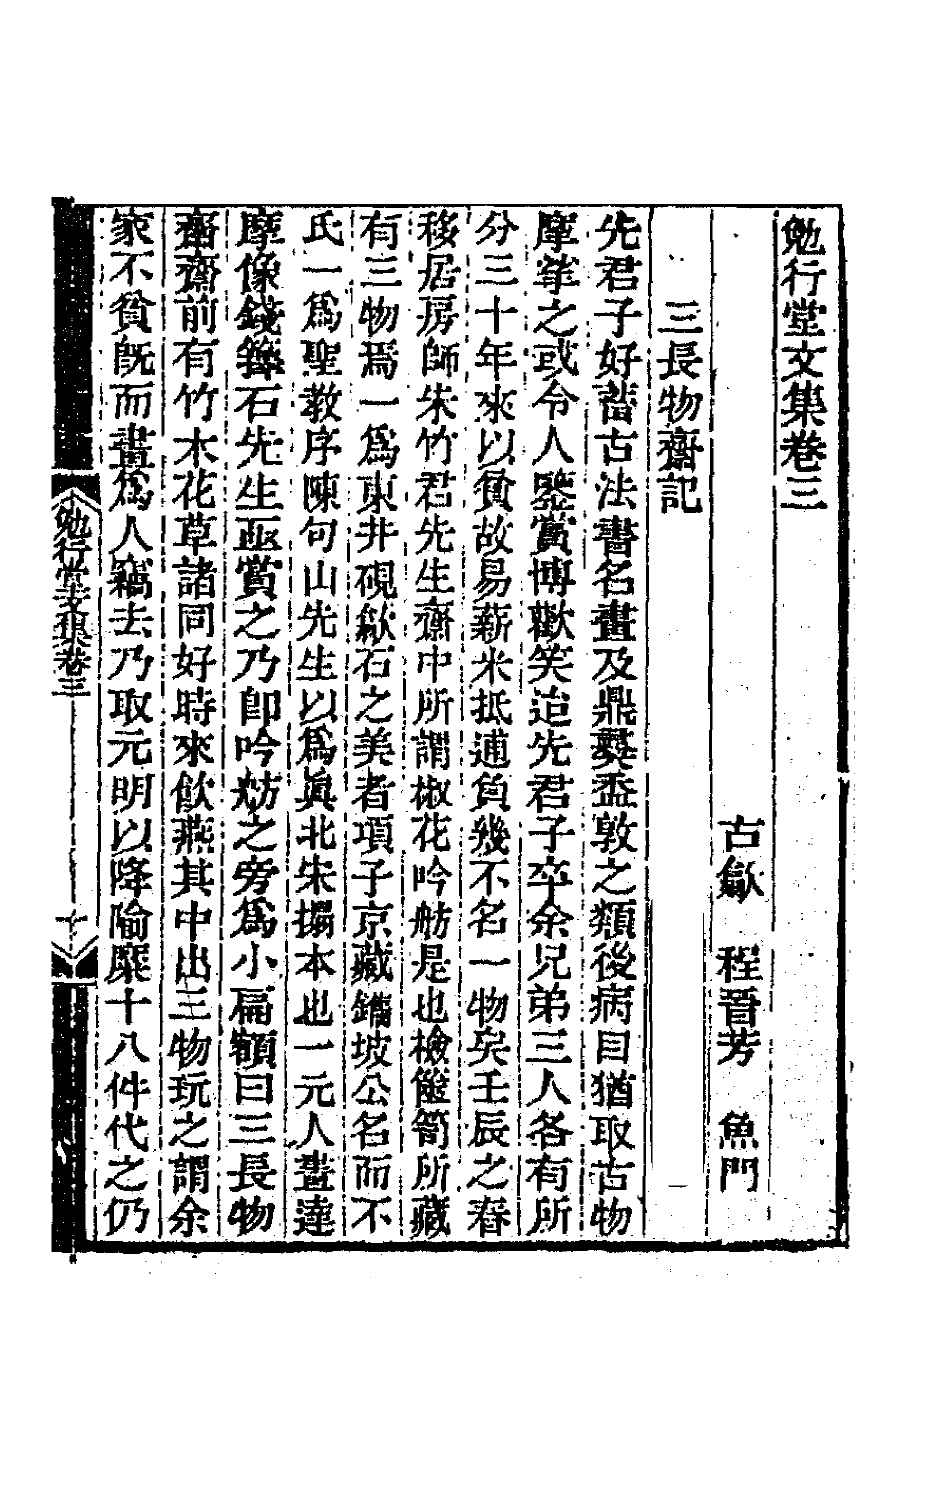 勉行堂文集卷三
古歙　程晉芳　魚門
三長物齋記
先君子好蓄古法書名畫及鼎彞盉敦之類後病日猶取古物
摩挲之或令人鑒賞博歡笑迨先君子卒余兄弟三人各有所
分三十年來以貧故易薪米抵逋負幾不名一物矣壬辰之春
移居房師朱竹君先生齋中所謂椒花吟舫是也檢篋笥所藏
有三物焉一爲東井硯歙石之美者項子京藏鐫坡公名而不
氏一爲聖教序陳句山先生以爲眞北朱搨本也一元人畫達
摩像錢籜石先生亟賞之乃卽吟舫之旁爲小扁額曰三長物
齋齋前有竹木花草諸同好時來飮燕其中出三物玩之謂余
家不貧旣而畫爲人竊去乃取元明以降隃糜十八件代之仍
勉行堂文集卷三
一